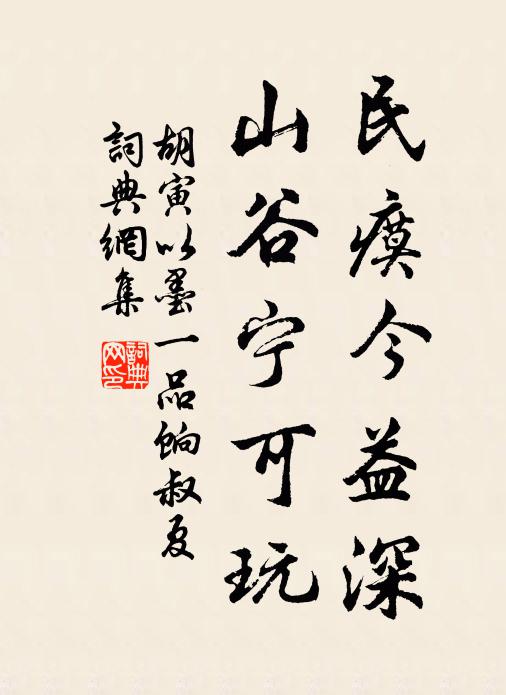 民瘼今益深
山谷宁可玩
胡寅以墨一品餉叔夏
詞典網集
詞典網印